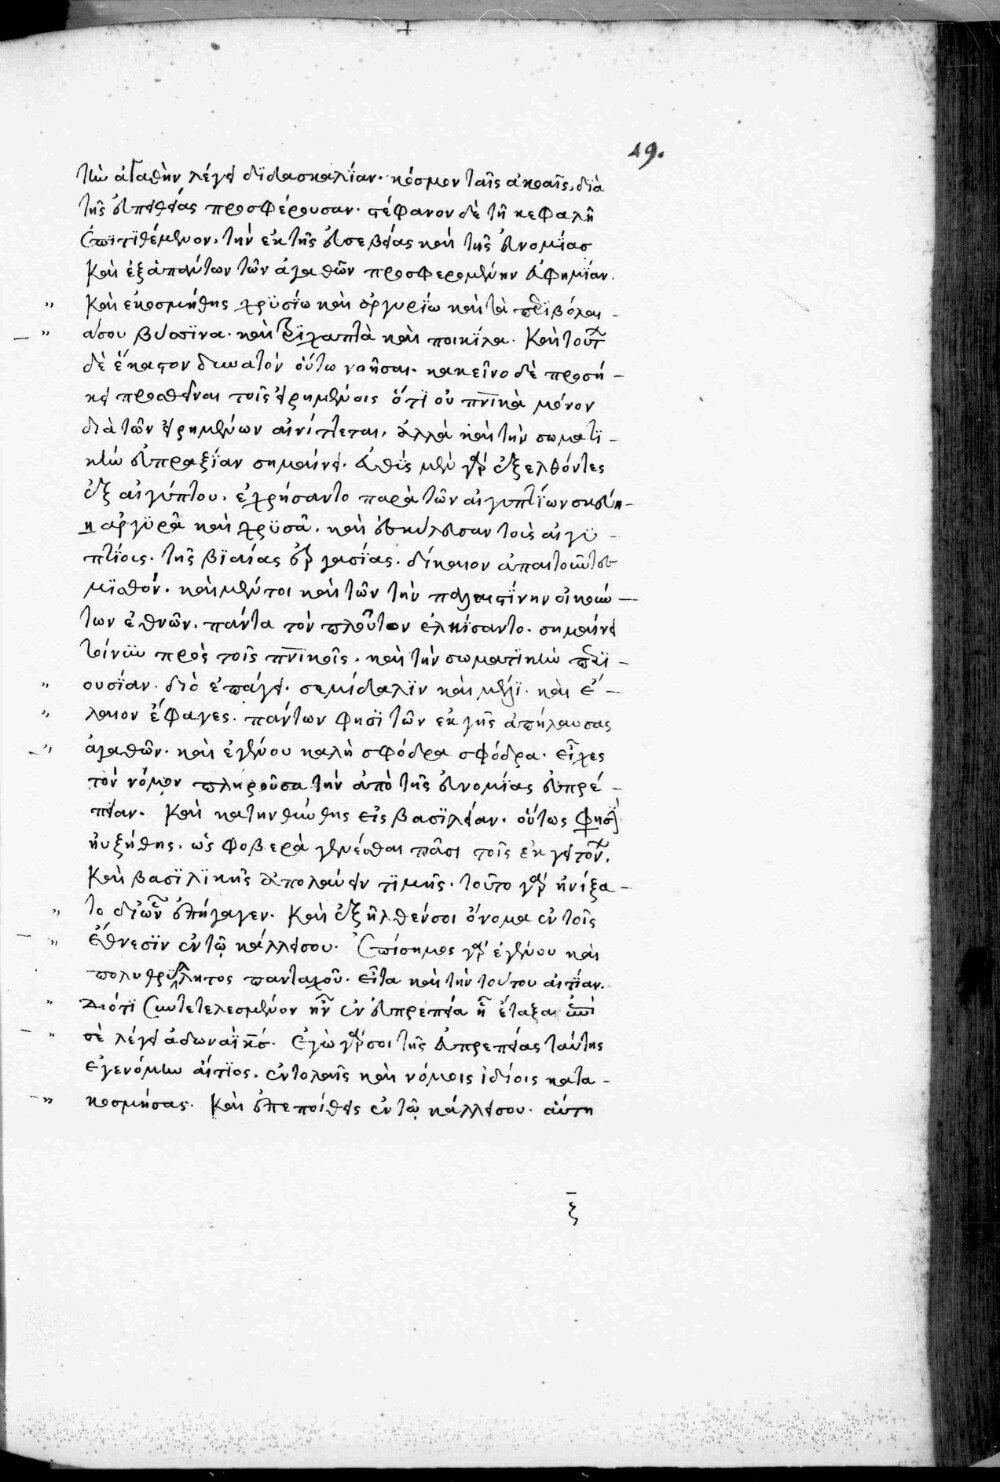 49.
τὴν ἀγαθὴν λέγει διδασκαλίαν· κόσμον ταῖς ἀκοαῖς, διὰ
τῆς εὐπειθείας προσφέρουσαν· στέφανον δὲ τῇ κεφαλῇ
ἐπιτιθέμενον, τὴν ἐκ τῆς εὐσεβείας καὶ τῆς εὐνομίας
καὶ ἐξ ἁπάντων τῶν ἀγαθῶν προσφερομένην εὐφημίαν.
" Καὶ ἐκοσμήθης χρυσίω καὶ ἀργυρίω καὶ τὰ περιβόλαι-
" ά σου βύσσινα· καὶ τρίχαπτα καὶ ποικίλα. Καὶ τούτων
δὲ ἕκαστον δυνατὸν οὕτω νοῆσαι· κακεῖνο δὲ προσή-
κει προσθεῖναι τοῖς εἰρημένοις ὅτι οὐ πνικὰ μόνον
διὰ τῶν εἰρημένων αἰνίττεται, ἀλλὰ καὶ τὴν σωματι-
κὴν εὐπραξίαν σημαίνει. εὐθὺς μὲν γὰρ ἐξελθόντες
ἐξ αἰγύπτου, ἐχρήσαντο παρὰ τῶν αἰγυπτίων σκεύη-
η ἀργυρᾶ καὶ χρυσᾶ, καὶ ἐσκύλευσαν τοὺς αἰγυ-
πτίους. τῆς βιαίας ἐργασίας, δίκαιον ἀπαιτοῦντες
μισθόν. καὶ μέντοι καὶ τῶν τὴν παλαιστίνην οἰκούν-
των ἐθνῶν, πάντα τὸν πλοῦτον ἐληίσαντο. σημαίνει
τοίνυν πρὸς τοῖς πνικοῖς, καὶ τὴν σωματικὴν περι-
" ουσίαν. διὸ ἐπάγει. σεμίδαλιν καὶ μέλι καὶ ἔ-
" λαιον ἔφαγες. πάντων φησὶ τῶν ἐκ γῆς ἀπήλαυσας
" ἀγαθῶν. καὶ ἐγένου καλὴ σφόδρα σφόδρα. εἶχες
τὸν νόμον πληροῦσα τὴν ἀπὸ τῆς εὐνομίας εὐπρέ-
πειαν. Καὶ κατηυθύνθης εἰς βασιλείαν. οὕτως φησὶν
ηὐξήθης, ὡς φοβερὰ γενέσθαι πᾶσι τοῖς ἐκ γειτόνων,
καὶ βασιλικῆς ἀπολαύειν τιμῆς. τοῦτο γὰρ ἠνίξα-
" το δι᾽ ὧν ἐπήγαγεν. Καὶ ἐξῆλθέν σοι ὄνομα ἐν τοῖς
" ἔθνεσιν ἐν τῷ κάλλει σου. Ἐπίσημος γὰρ ἐγένου καὶ
πολυθρύλλητος πανταχοῦ. εἶτα καὶ τὴν τούτου αἰτίαν.
" Διότι συντετελεσμένον ἦν ἐν εὐπρεπεία ᾗ ἔταξα ἐπὶ
" σὲ λέγει ἀδωναῒ κς. Ἐγὼ γάρ σοι τῆς εὐπρεπείας ταύτης
ἐγενόμην αἴτιος, ἐντολαῖς καὶ νόμοις ἰδίοις κατα-
" κοσμήσας. Καὶ ἐπεποίθεις ἐν τῷ κάλλει σου. αὕτη
ξ